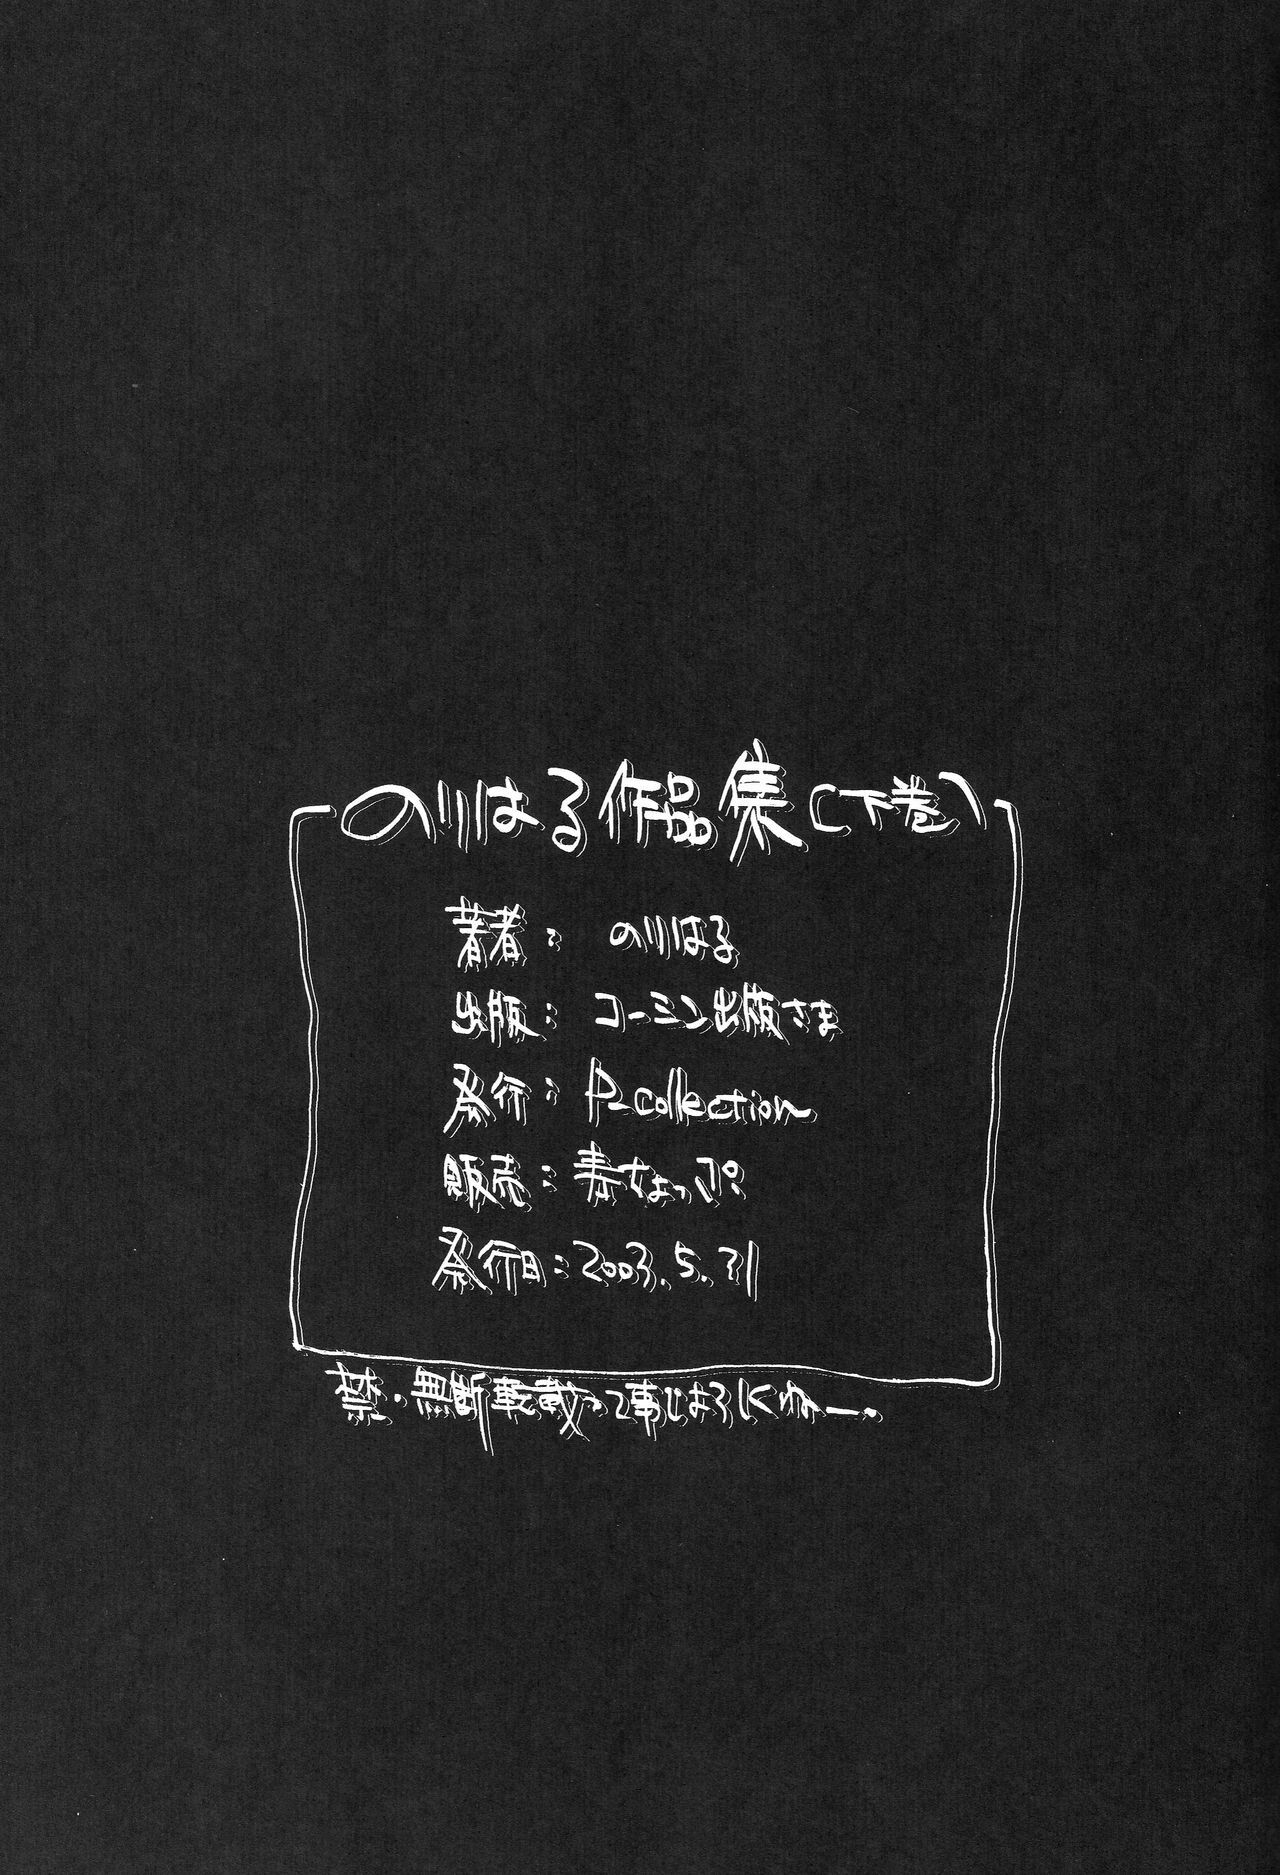 のりはる作品集(下巻)
著者: のりはる
出版: コーミン出版さま
発行: P-collection
販売: 春ちょっぷ
発行日:2003.5.31
禁・無断転載って事じゃろしくねー.